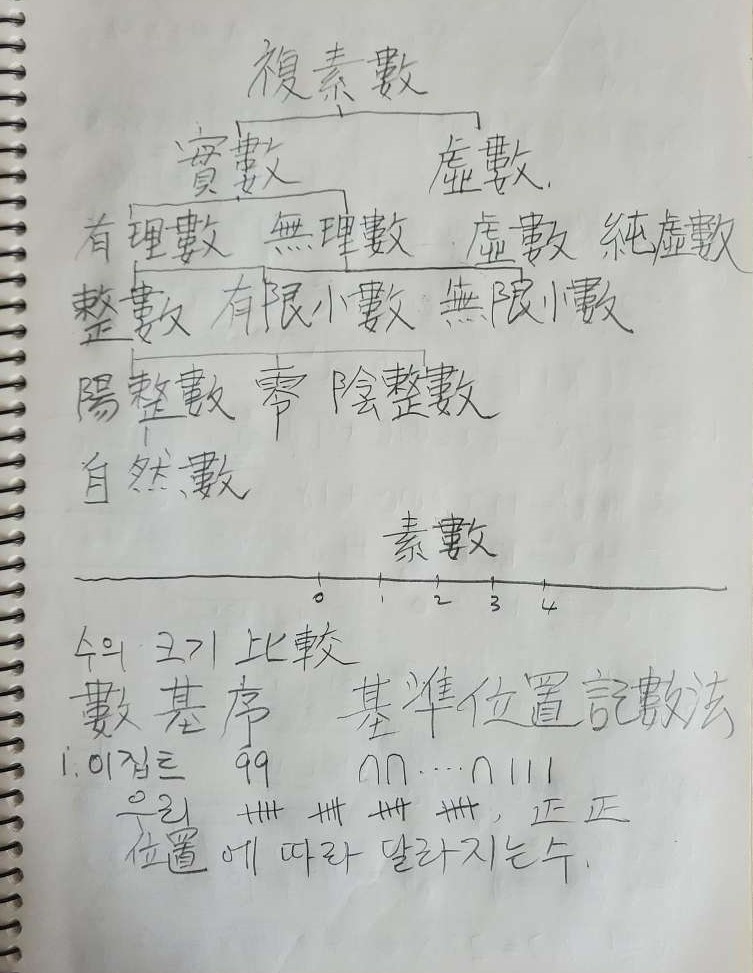 複素數
實數 虛數.
有理數 無理數 虛數 純虛數
整數 有限小數 無限小數
陽整數 零 陰整數
自然數
素數
0 1 2 3 4
수의 크기 比較
數基序 基準位置記數法
i. 이집트 99 ∩∩····∩ III
우리 卌 卌 卌 卌. 正正
位置에 따라 달라지는 수.